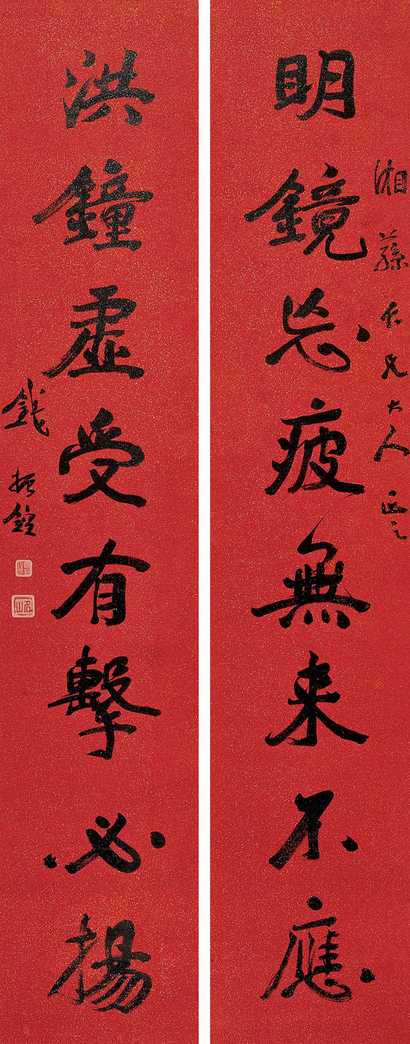 湘蓀仁兄大人正之
明鏡忘疲無来不應
洪鐘虛受有擊必揚
錢振鍠